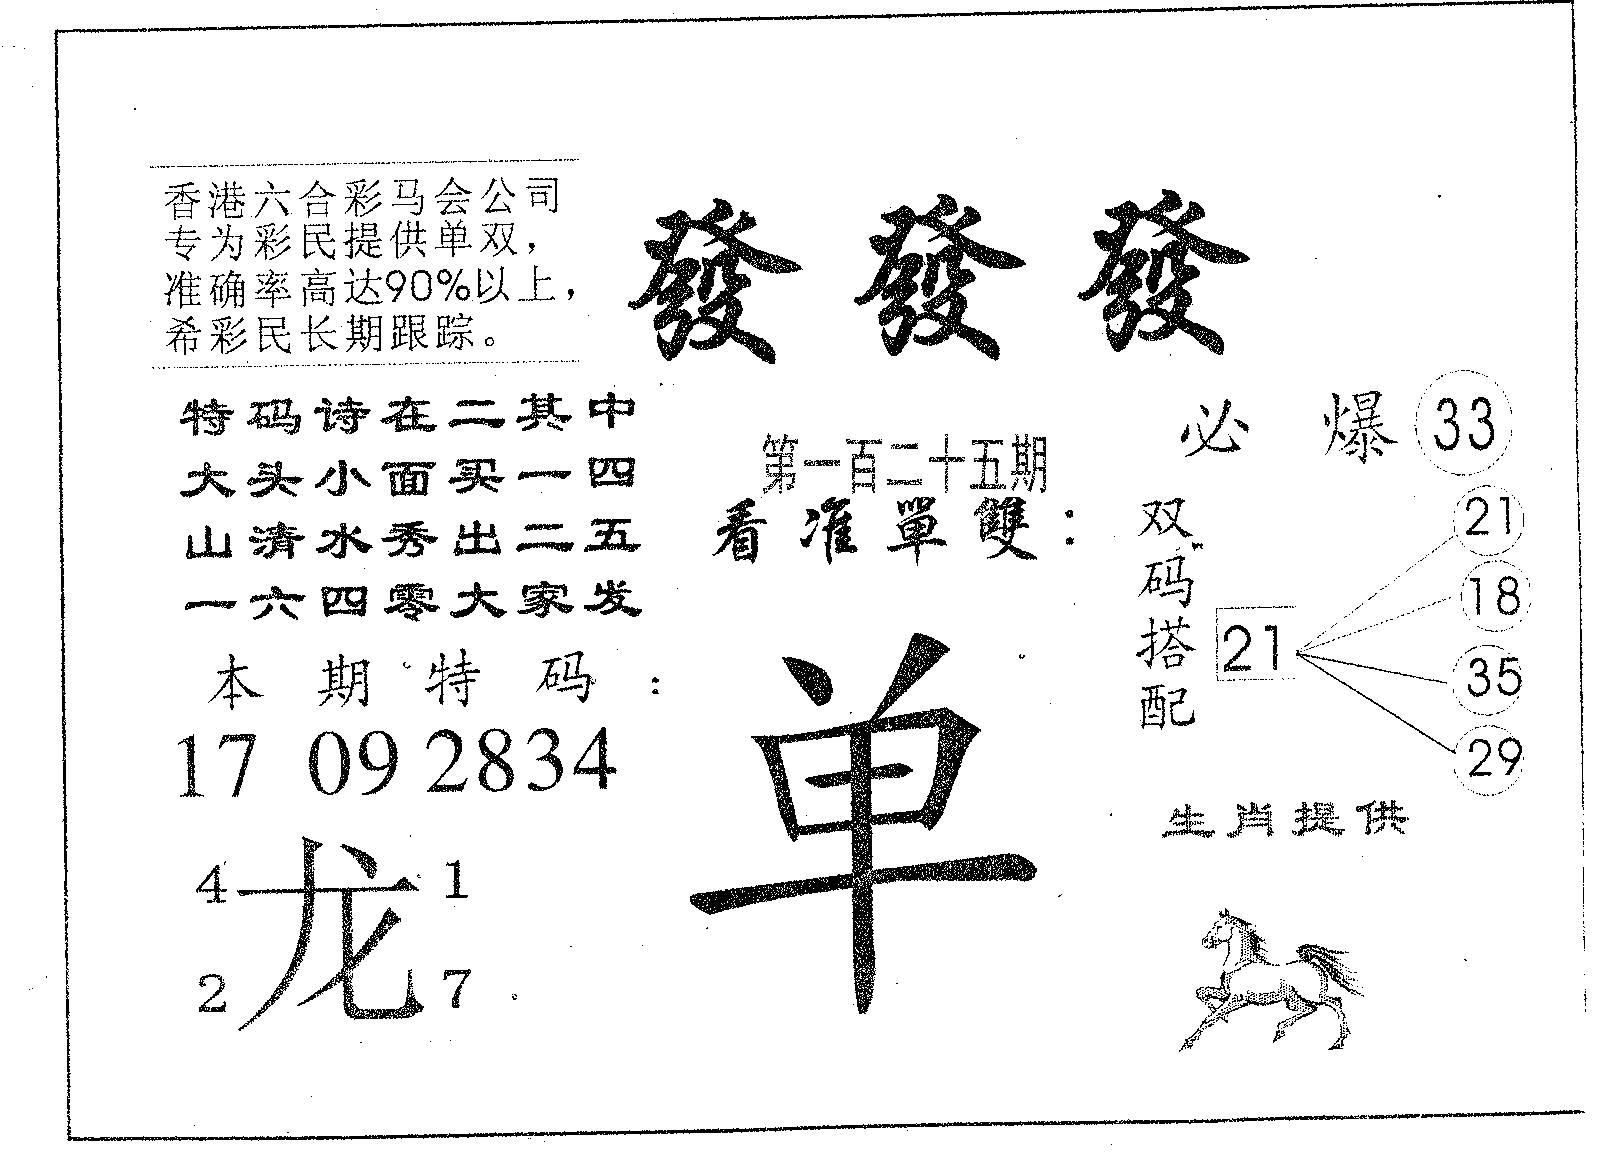 香港六合彩马会公司
专为彩民提供单双，
准确率高达90%以上，
希彩民长期跟踪。
發發發
特码诗在二其中
大头小面买一四
山清水秀出二五
一六四零大家发
本期特码：
17 09 2834
4 龙 1
2 7
第一百二十五期
看准單雙：
单
必爆 33
双码搭配
21
21
18
35
29
生肖提供